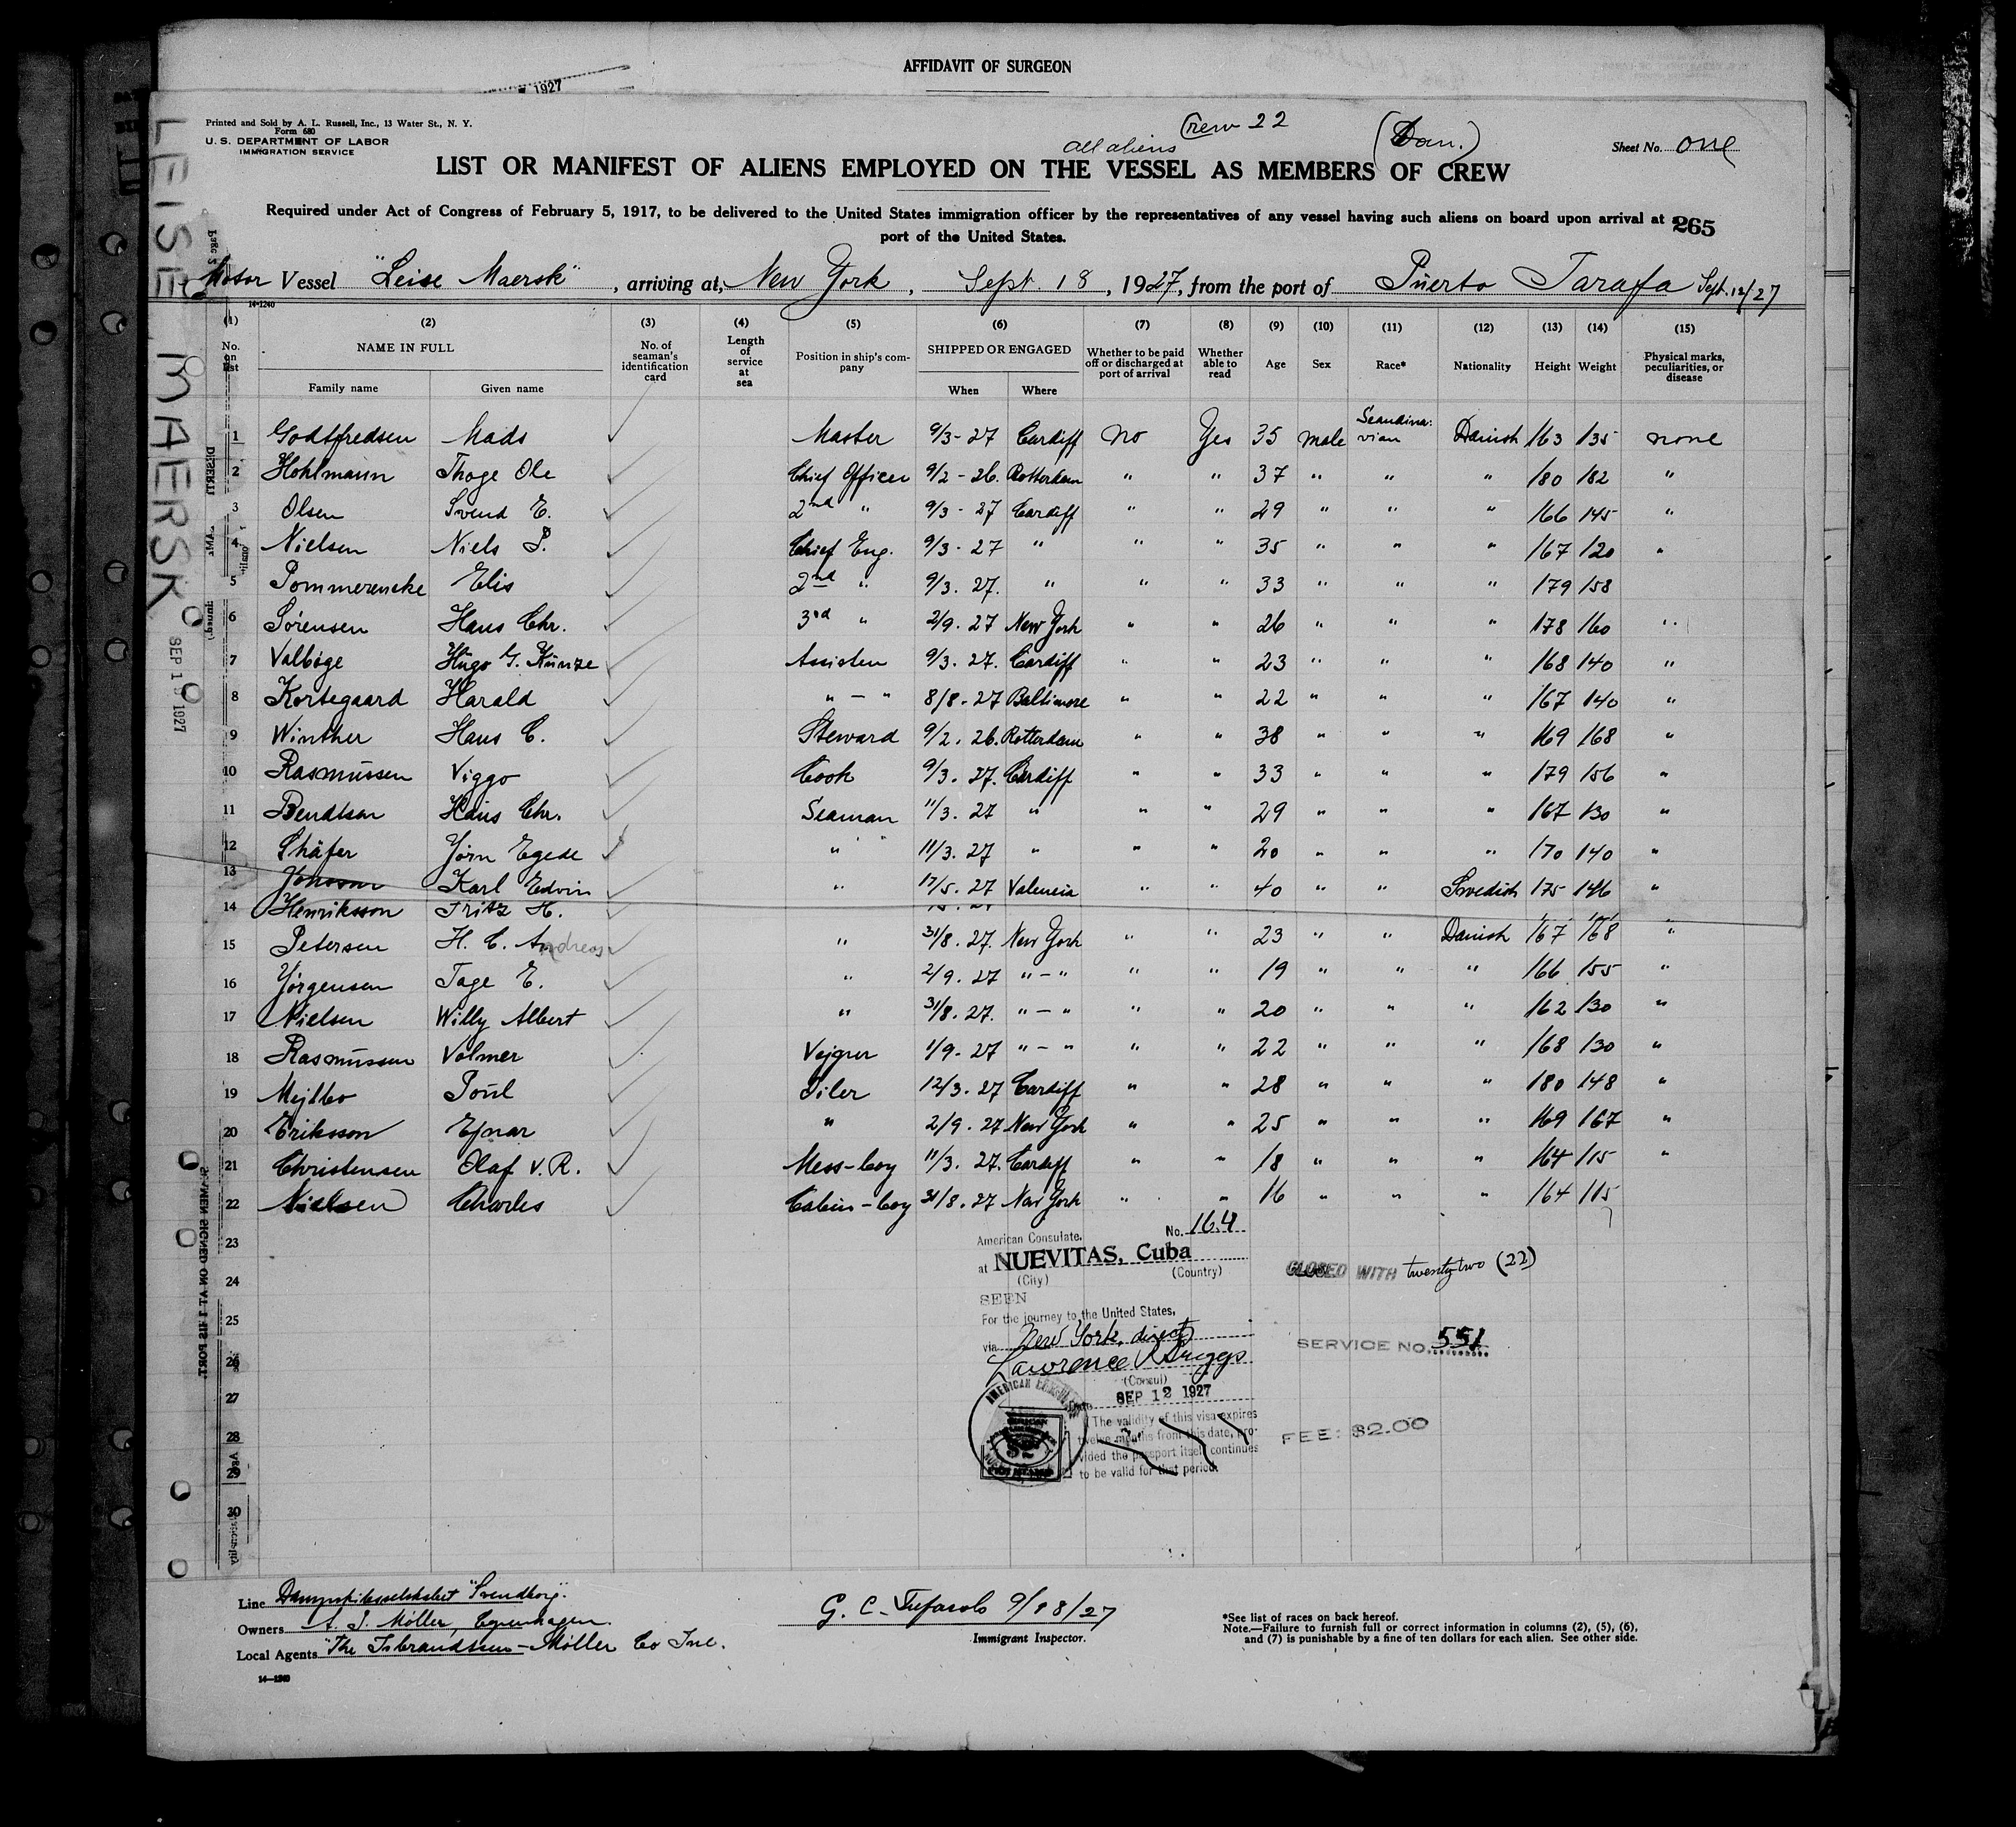 AFFIDAVIT OF SURGEON
1927
Printed and Sold by A. L. Russell, Inc., 13 Water St., N. Y.
Form 680
U. S. DEPARTMENT OF LABOR
IMMIGRATION SERVICE
Crew 22
All aliens
(Dan.)
Sheet No. one
LIST OR MANIFEST OF ALIENS EMPLOYED ON THE VESSEL AS MEMBERS OF CREW
Required under Act of Congress of February 5, 1917, to be delivered to the United States immigration officer by the representatives of any vessel having such aliens on board upon arrival at
port of the United States.
265
Motor Vessel "Leise Maersk", arriving at, New York, Sept. 18, 1927, from the port of Puerto Tarafa Sept. 12/27
14-1240
LEISE MAERSK
SEP 19 1927
(1) (2) (3) (4) (5) (6) (7) (8) (9) (10) (11) (12) (13) (14) (15)
No. on list NAME IN FULL No. of seaman's identification card Length of service at sea Position in ship's company SHIPPED OR ENGAGED Whether to be paid off or discharged at port of arrival Whether able to read Age Sex Race* Nationality Height Weight Physical marks, peculiarities, or disease
Family name Given name When Where
1 Godtfredsen Mads Master 9/3-27 Cardiff no Yes 35 male Scandinavian Danish 163 135 none
2 Hohlmann Thoge Ole Chief Officer 9/2-26. Rotterdam " " 37 " " " 180 182 "
3 Olsen Svend E. 2nd " 9/3-27 Cardiff " " 29 " " " 166 145 "
4 Nielsen Niels P. Chief Eng. 9/3-27 " " " 35 " " " 167 120 "
5 Pommerencke Elis 2nd " 9/3. 27. " " " 33 " " " 179 158
6 Sørensen Hans Chr. 3rd " 2/9. 27 New York " " 26 " " " 178 160 "
7 Valbøge Hugo G. Kunze Assisten 9/3. 27. Cardiff " " 23 " " " 168 140 "
8 Kortegaard Harald " - " 8/8. 27 Baltimore " " 22 " " " 167 140 "
9 Winther Hans C. Steward 9/2. 26. Rotterdam " " 38 " " " 169 168 "
10 Rasmussen Viggo Cook 9/3. 27. Cardiff " " 33 " " " 179 156 "
11 Bendtsen Hans Chr. Seaman 11/3. 27 " " " 29 " " " 167 130 "
12 Shäfer Jørn Egede " 11/3. 27 " " " 20 " " " 170 140 "
13 Karl Edvin " 17/5. 27 Valencia " " 40 " " Swedish 175 146 "
14 Henriksson Fritz H.
15 Petersen H. C. Andreas " 31/8. 27. New York " " 23 " " Danish 167 168 "
16 Jørgensen Tage E. " 2/9. 27 " - " " " 19 " " " 166 155 "
17 Nielsen Willy Albert " 31/8. 27. " - " " " 20 " " " 162 130 "
18 Rasmussen Volmer 1/9. 27 " - " " " 22 " " " 168 130 "
19 Mejlbo Poul Oiler 12/3. 27 Cardiff " " 28 " " " 180 148 "
20 Eriksson Ejnar " 2/9. 27 New York " " 25 " " " 169 167 "
21 Christensen Olaf V. R. Mess-boy 11/3. 27. Cardiff " " 18 " " " 164 115 "
22 Nielsen Charles Cabin-boy 31/8. 27 New York " " 16 " " " 164 115
23
24
25
26
27
28
29
30
American Consulate. No. 164
at NUEVITAS, Cuba
(City) (Country)
SEEN
For the journey to the United States,
via New York, direct
Lawrence Briggs
(Consul)
SEP 12 1927
The validity of this visa expires
twelve months from this date, pro-
vided the passport itself continues
to be valid for that period.
CLOSED WITH twenty two (22)
SERVICE NO. 551
FEE: $2.00
Line Dampskibsselskabet "Svendborg".
Owners A. P. Möller, Copenhagen.
Local Agents "The Isbrandtsen-Möller Co Inc.
14-1240
9/18/27
Immigrant Inspector.
*See list of races on back hereof.
Note.—Failure to furnish full or correct information in columns (2), (5), (6),
and (7) is punishable by a fine of ten dollars for each alien. See other side.